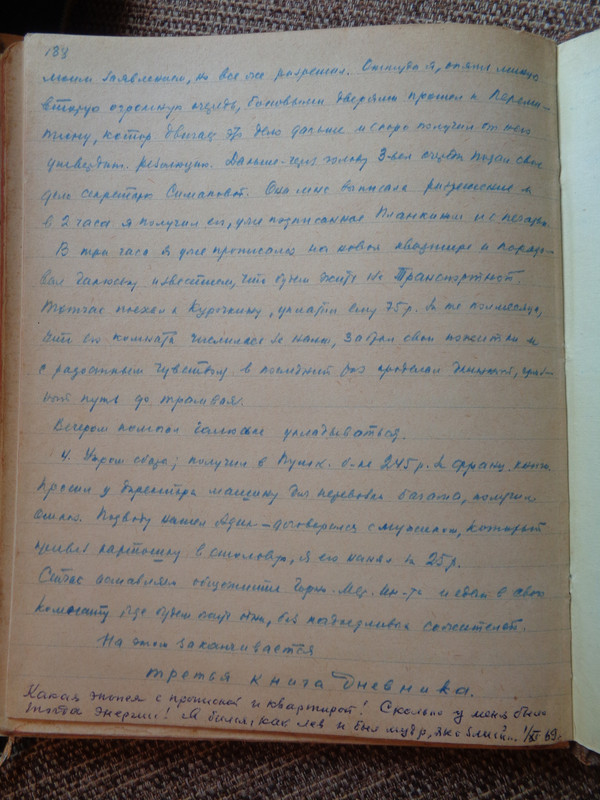 189
моим заявлением, но все же разрешил. Оттуда я, опять минуя
вторую огромную очередь, боковыми дверями прошел к
тиону, который двигал это дело дальше и скоро получил от него
утвердит. резолюцию. Дальше через голову 3-мя очередь подал свое
дело секретарю Симаковой. Она мне выписала разрешение и
в 2 часа я получил его, уже подписанное Планкиным и с печатью.
В три часа я уже прописался на новой квартире и порадо-
вал Галюську известием, что будем жить на Транспортной.
Тотчас поехал к Курочкину, уплатил ему 75 р. за те полмесяца,
что его комната числилась за нами, забрал свои пожитки и
с радостным чувством в последний раз проделал длинный, гряз-
ный путь до трамвая.
Вечером помогал Галюське укладываться.
4. Утром сбегал, получил в 245 р. за франц. книги.
Просил у директора машину для перевозки багажа, получил
отказ. Подводу нашел Адик - договорился с мужиком, который
привез картошку в столовую, я его нанял за 25 р.
Сейчас оставляем общежитие Горн. Мет. Ин-та и едем в свою
комнату, где будем жить одни, без надоедливых сожителей.
На этом заканчивается
третья книга дневника.
Какая эпопея с пропиской и квартирой! Сколько у меня было
тогда энергии! Я бился, как лев и был мудр, як 1/XI 69 г.